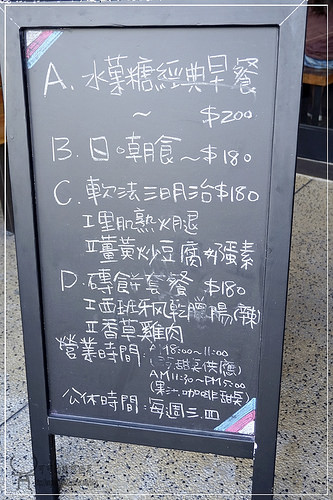 A. 水菓糖經典早餐
~ $200
B. 日。朝食~$180
C. 軟法三明治$180
I里肌熟火腿
II薑黃炒豆腐 奶蛋素
D. 磚餅套餐 $180
I西班牙風乾臘腸(辣)
II香草雞肉
營業時間: 8:00~11:00
甜点供應)
AM11:30~PM5:00
(果汁.咖啡.甜点)
公休時間: 每週三.四